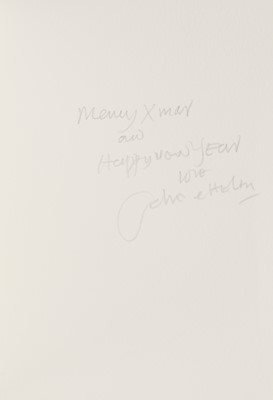 Merry Xmas
and
Happy New Year
love
John & Helen